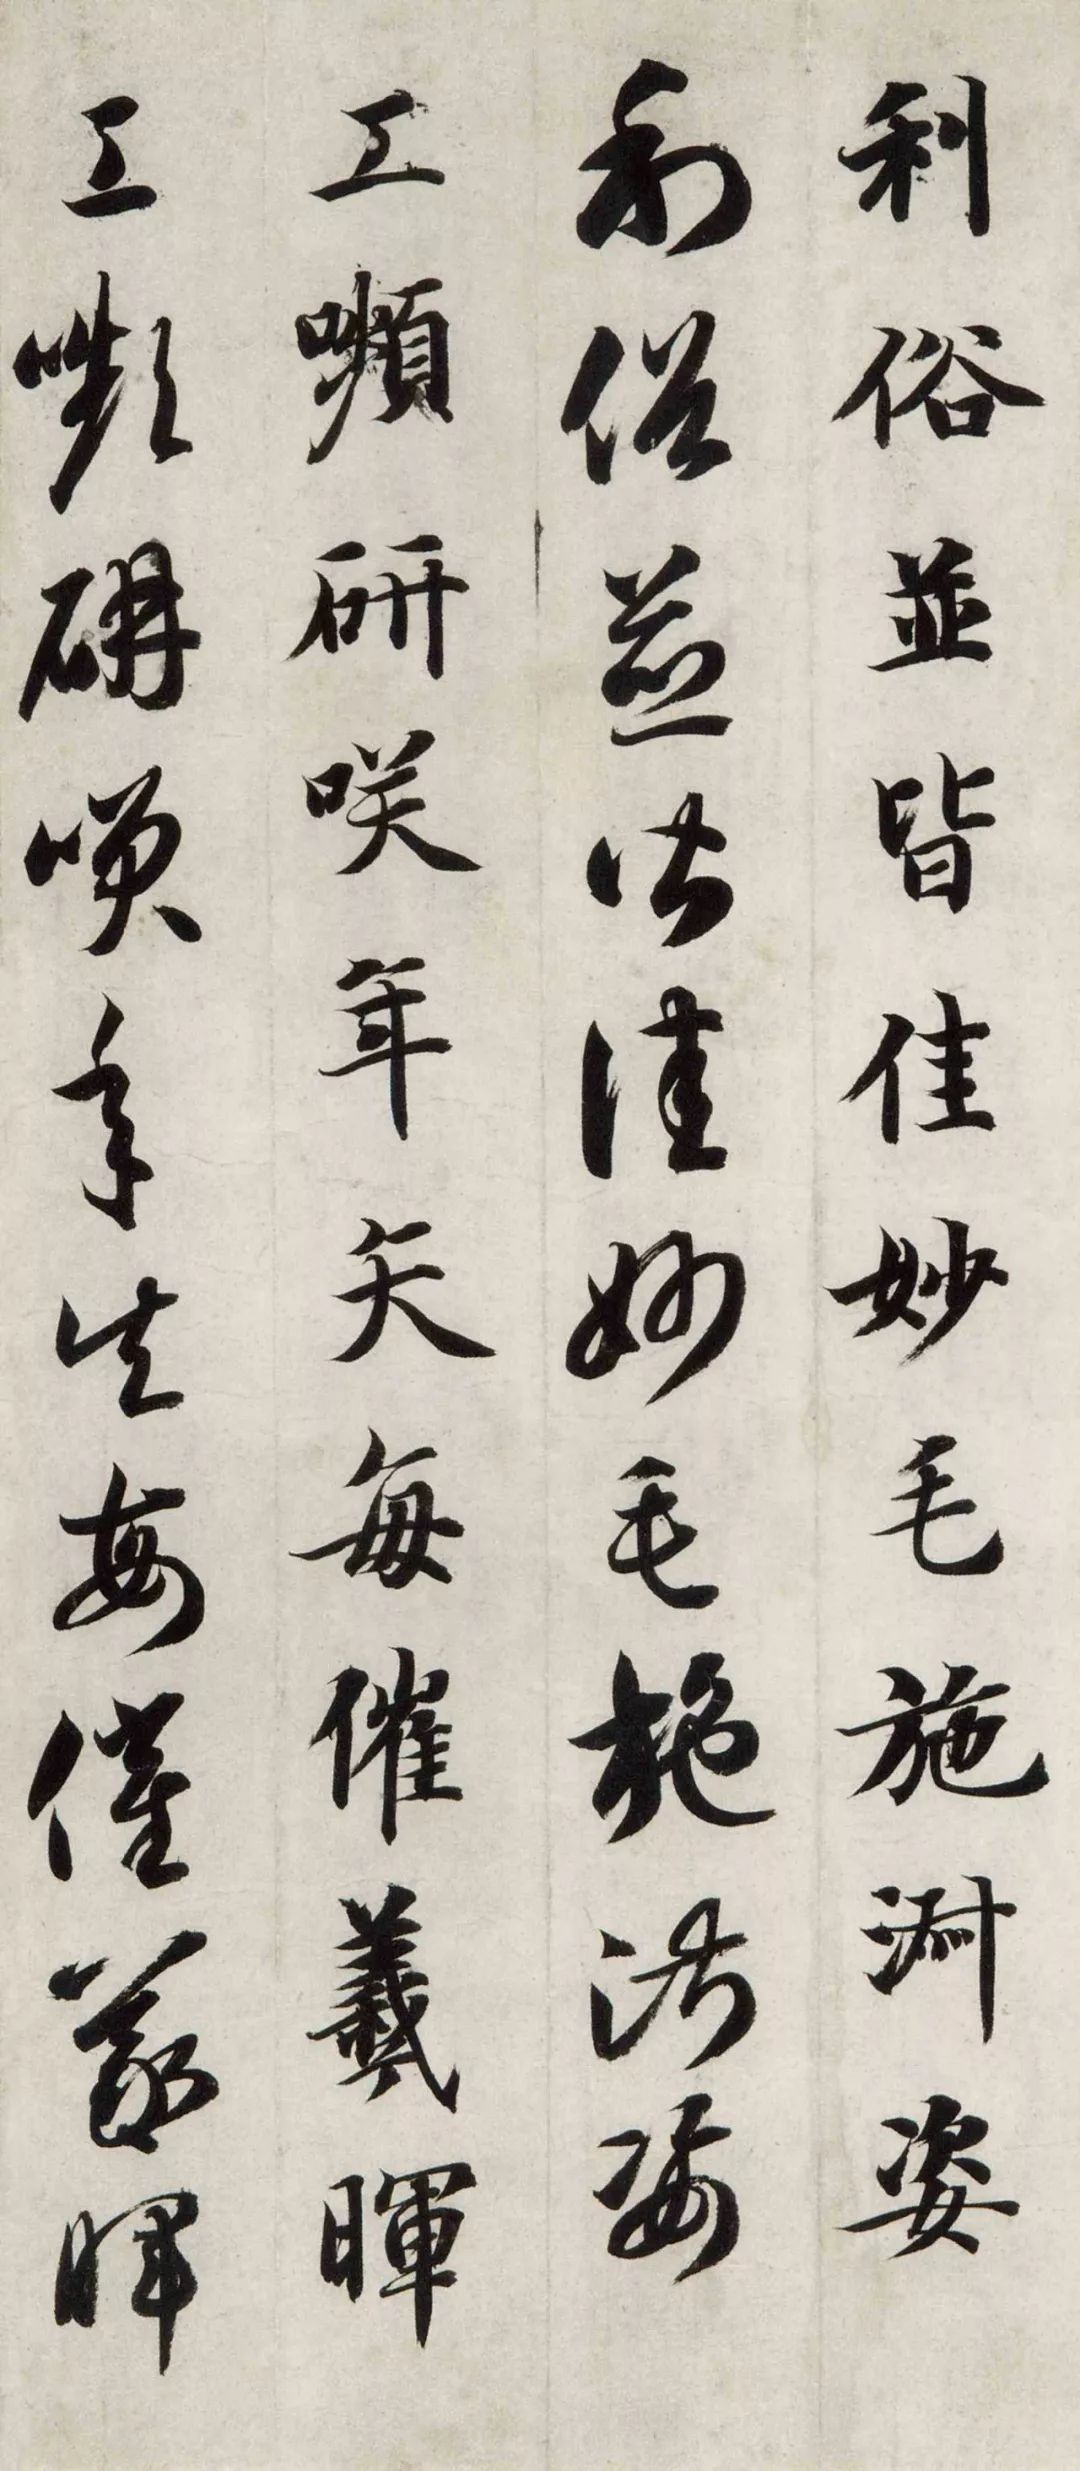 利俗並皆佳妙毛施淑姿
利俗並皆佳妙毛施淑姿
工嚬研咲年矢每催羲暉
工嚬研笑年矢每催羲暉